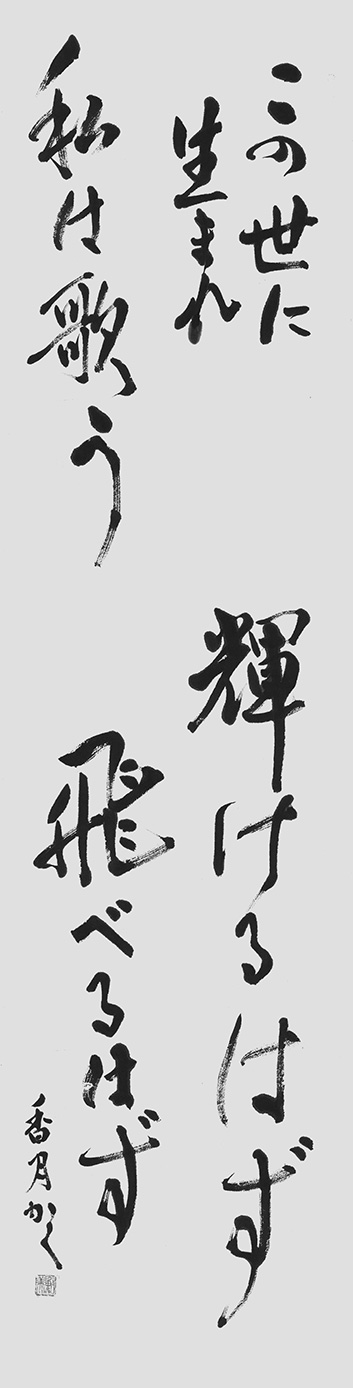 この世に
生まれ
私は歌う
輝けるはず
飛べるはず
香月かく